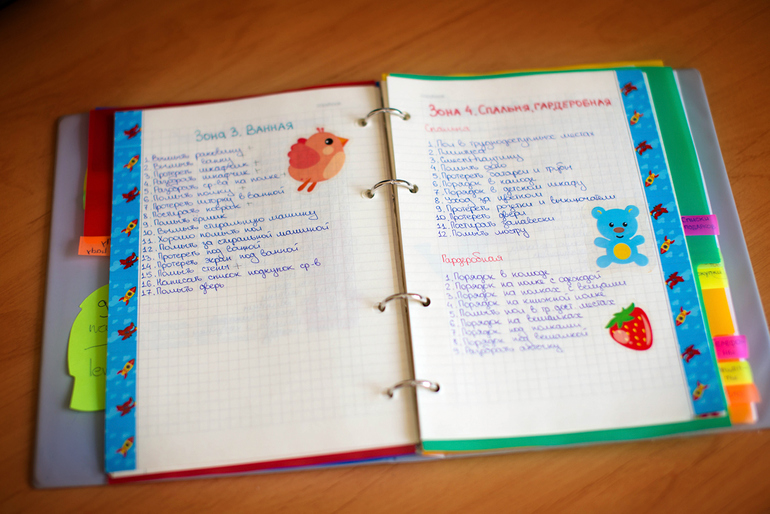 Зона 3. Ванная
1. Вымыть раковину +
2. Вымыть ванну
3. Протереть шкафчик +
4. Разобрать шкафчик +
5. Разобрать ср-ва на полке
6. Помыть полку +
7. Протереть шторки в ванной
8. Постирать коврик
9. Помыть ёршик
10. Вымыть стиральную машину
11. Хорошо помыть пол
12. Помыть за стиральной машиной
13. Протереть под ванной
14. Протереть экран под ванной
15. Помыть стены +
16. Написать список покупок ср-в
17. Помыть дверь
Зона 4. Спальня, гардеробная
Спальня
1. Пол в труднодоступных местах
2. Плинтуса
3. Смести паутину
4. Помыть окно
5. Протереть батареи и трубы
6. Порядок в комоде
7. Порядок в детском шкафу
8. Уход за цветами
9. Протереть розетки и выключатели
10. Протереть двери
11. Постирать занавески
12. Помыть люстру
Гардеробная
1. Порядок в комоде
2. Порядок на полке с одеждой
3. Порядок на полках с вещами
4. Порядок на книжной полке
5. Помыть пол в тр. дост. местах
6. Порядок на вешалках
7. Порядок над полками
8. Порядок под вешалкой
9. Разобрать